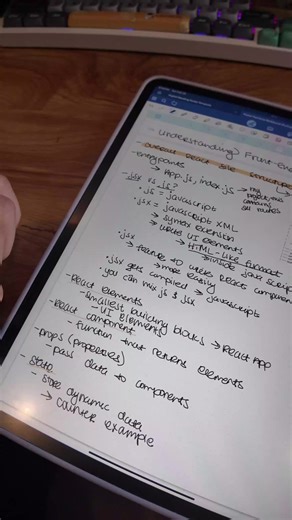 Understanding Front-end
- overall React site structure
- entrypoints
→ App.js, index.js → my
- jsx vs js?
• js = javascript
• jsx = javascript XML
→ syntax extension
→ write UI elements
→ HTML-like format
→ inside javascript
• jsx
→ easier to write React components
more easily
• jsx gets compiled → javascript
• you can mix js & jsx
- React elements
- smallest building blocks → React App
- UI element
- React component
- function that returns elements
- props (properties)
- pass data to components
- state
- store dynamic data
→ counter example